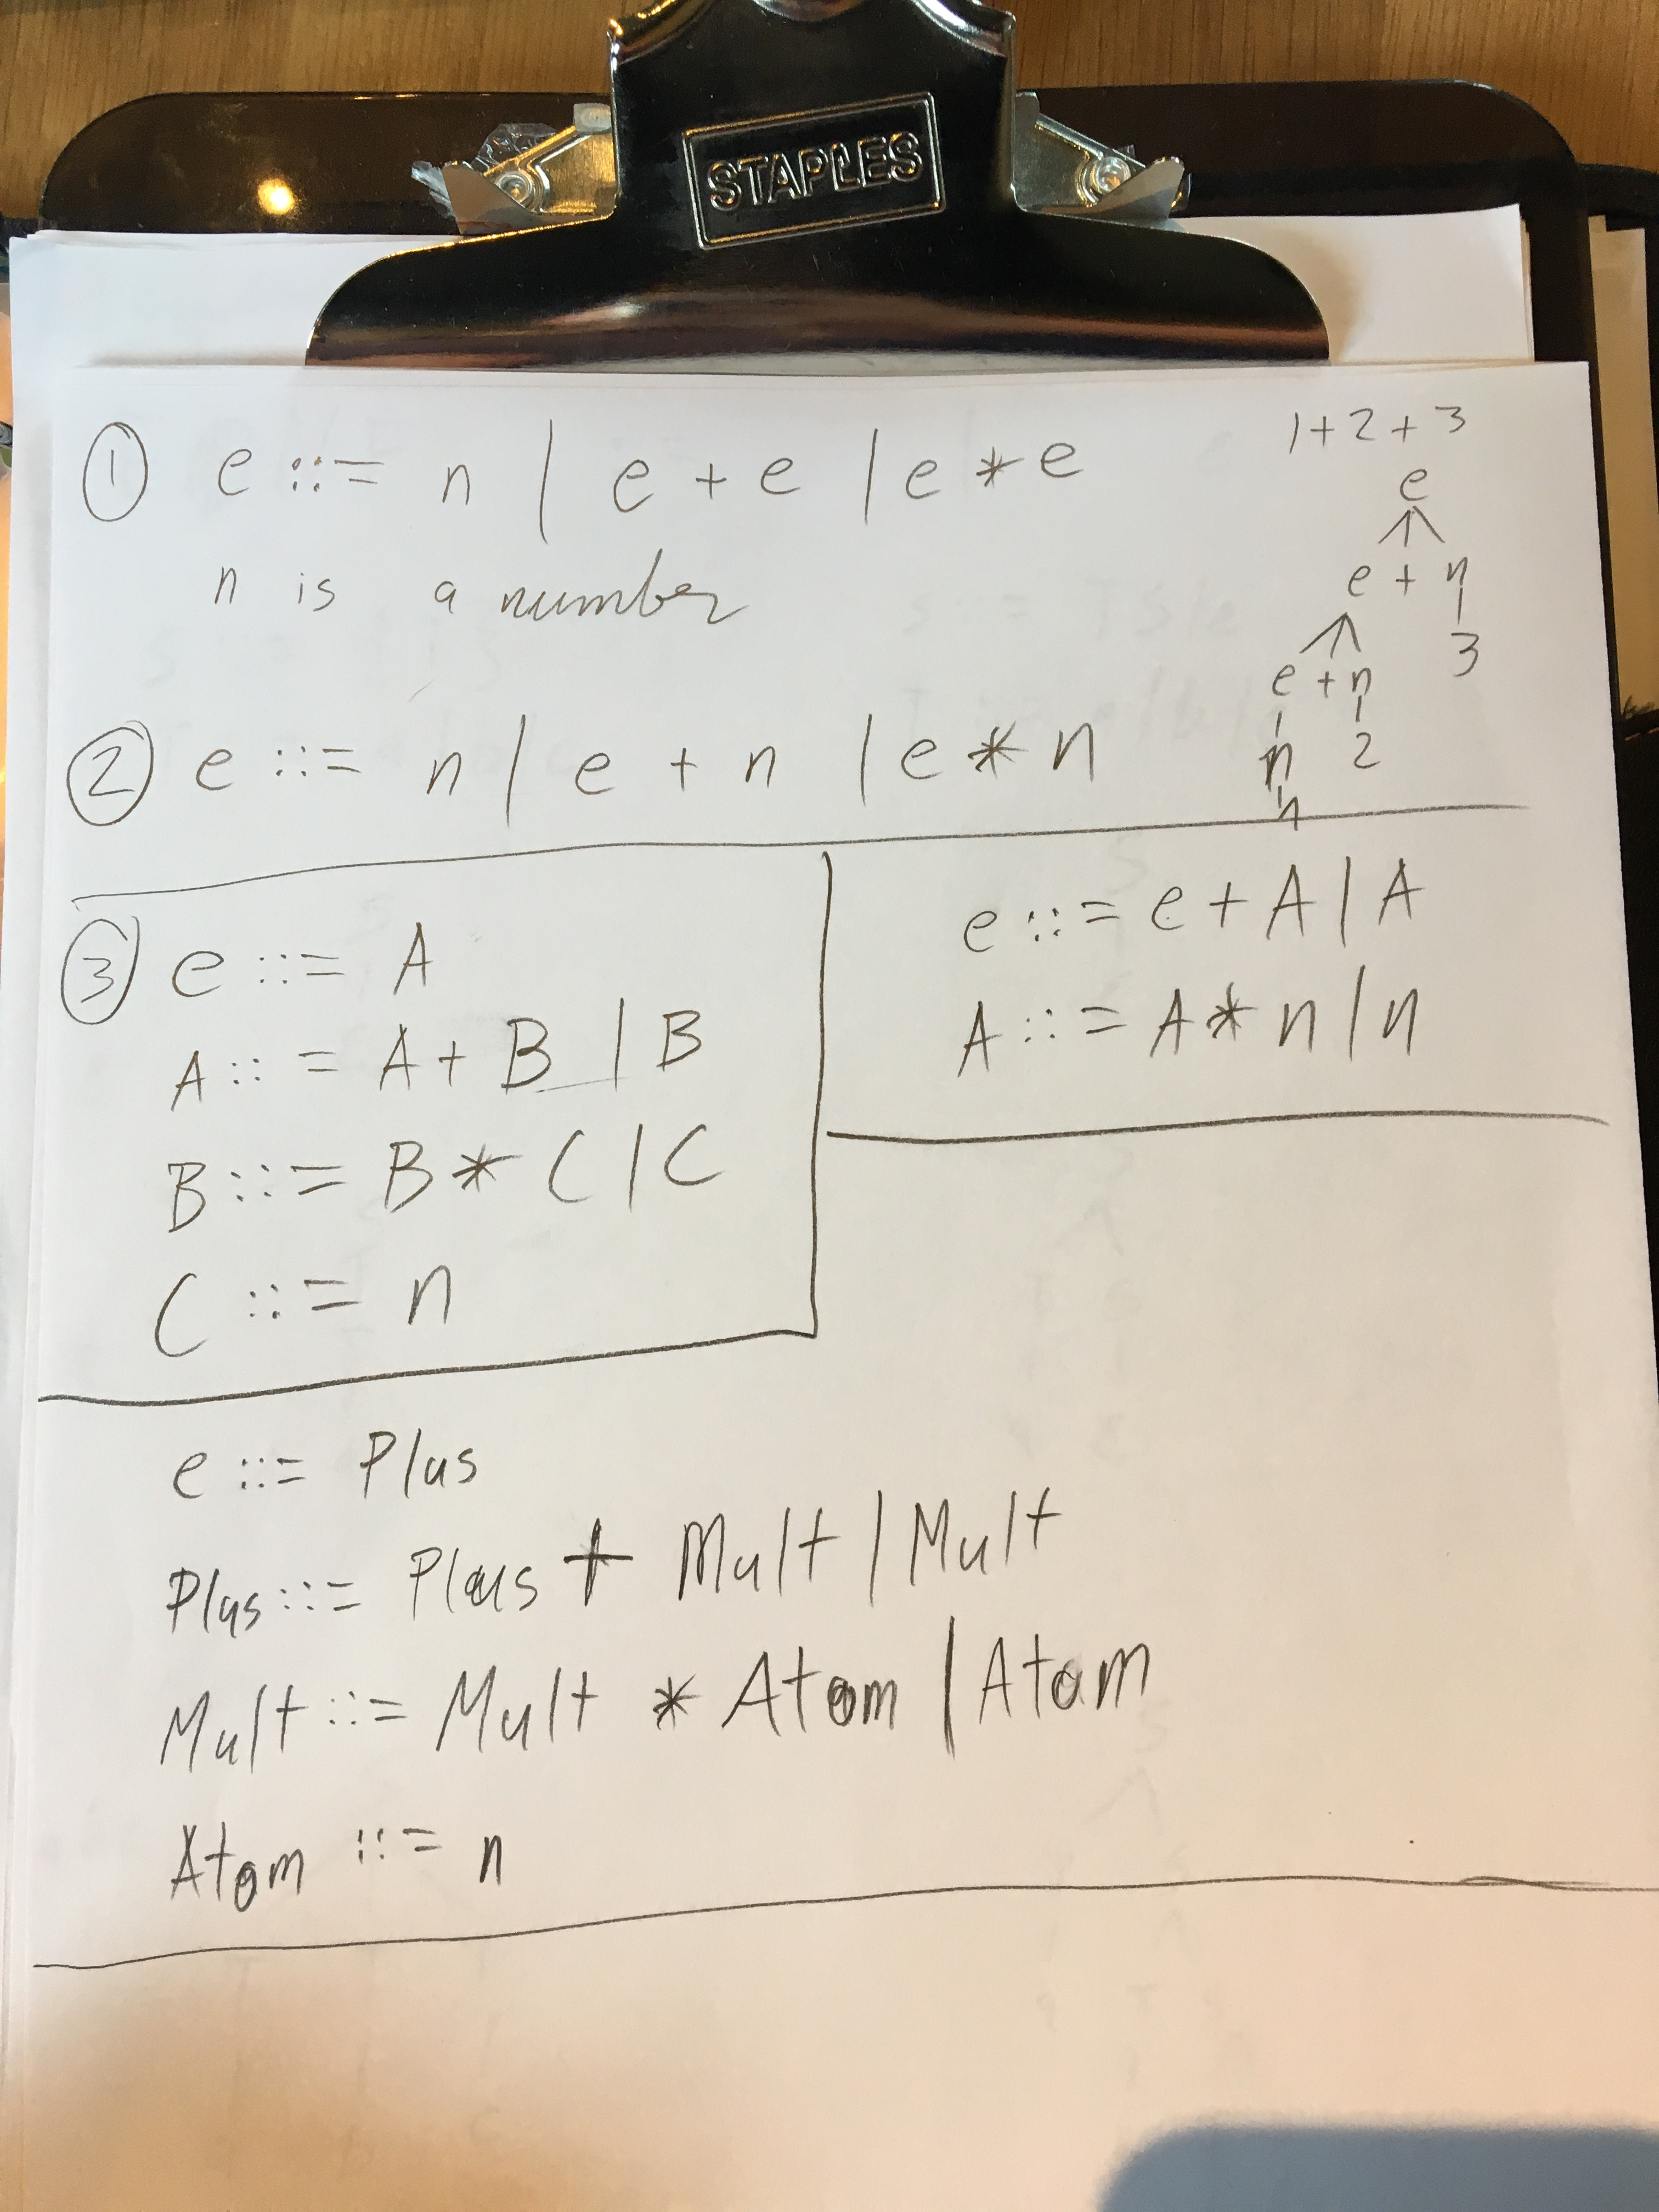 STAPLES
① e ::= n | e + e | e * e
n is a number
1+2+3
e
e + n
3
e + n
n 2
n
② e ::= n | e + n | e * n
③ e ::= A
A ::= A + B | B
B ::= B * C | C
C ::= n
e ::= e + A | A
A ::= A * n | n
e ::= Plus
Plus ::= Plus + Mult | Mult
Mult ::= Mult * Atom | Atom
Atom ::= n